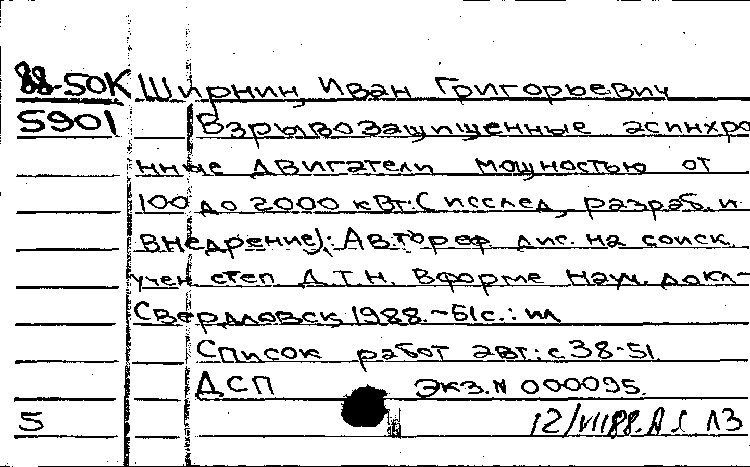 88-50К Ширнин, Иван Григорьевич
5901 Взрывозащищенные асинхро
нные двигатели мощностью от
100 до 2000 кВт: (исслед, разраб. и
внедрение): Автореф дис. на соиск
учен степ Д.Т.Н. в форме науч. докл-
Свердловск, 1988.-51с.: ил
Список работ авт: с.38-51.
ДСП Экз. N 000095.
5 12/VII88. А.С ЛЗ